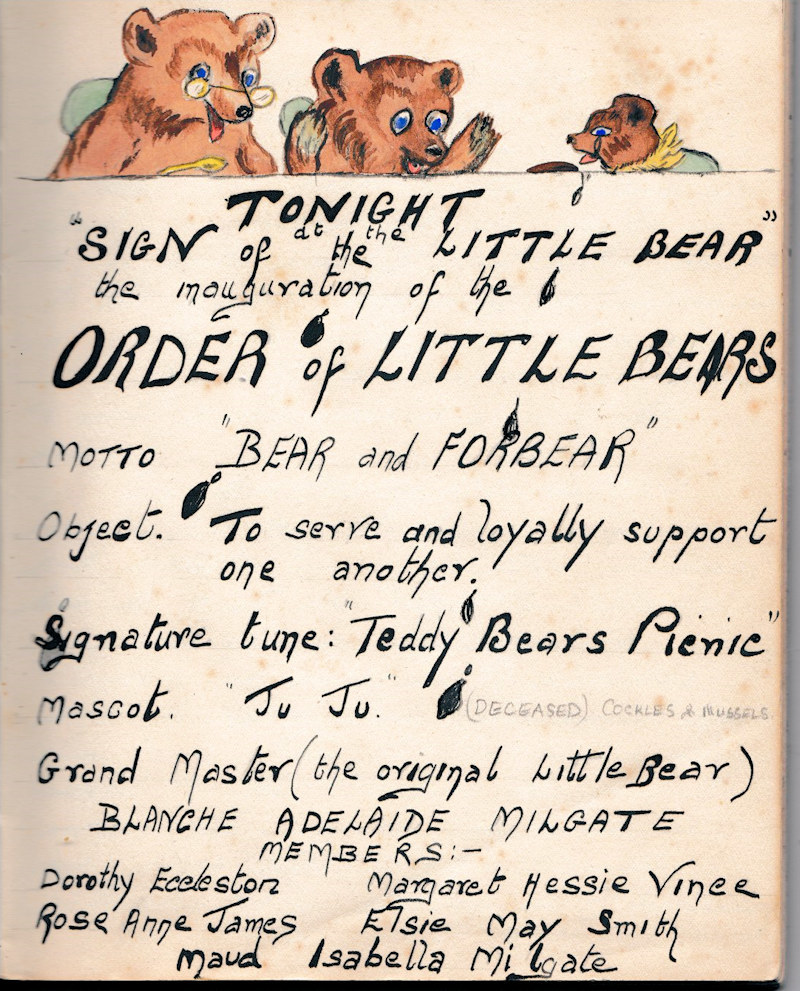 TONIGHT
at the
"SIGN of the LITTLE BEAR"
the inauguration of the
ORDER of LITTLE BEARS
MOTTO "BEAR and FORBEAR"
Object. To serve and loyally support
one another.
Signature tune: "Teddy Bears Picnic"
Mascot. "Ju Ju." (DECEASED) COCKLES & MUSSELS.
Grand Master (the original Little Bear)
BLANCHE ADELAIDE MILGATE
MEMBERS:-
Dorothy Eccleston Margaret Hessie Vince
Rose Anne James Elsie May Smith
Maud Isabella Milgate